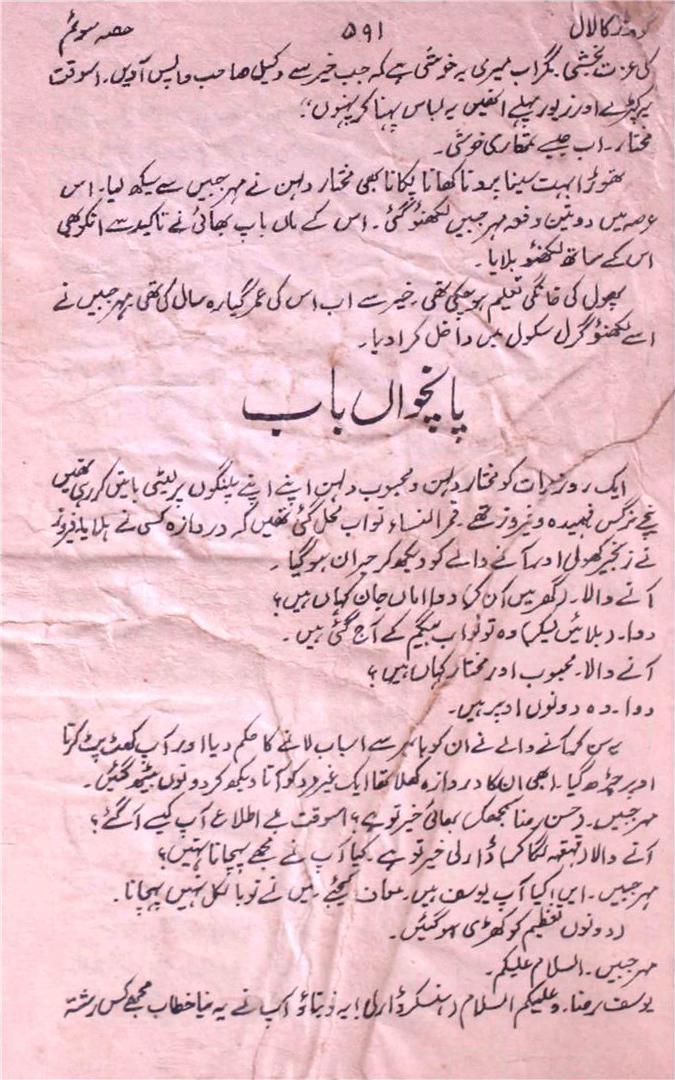 گودڑ کا لال ۵۹۱ حصہ سوئم
کی عزت بخشی۔ مگر اب میری یہ خوشی ہے کہ جب خیر سے وکیل صاحب واپس آویں۔ اسوقت
یہ کپڑے اور زیور پہلے انھیں یہ لباس پہنا کر پہنوں"۔
مختار۔ اب جیسے تمھاری خوشی۔
تھوڑا بہت سینا پرونا کھانا پکانا بھی مختار دلہن نے مہر جبیں سے سیکھ لیا۔ اس
عرصہ میں دو تین دفعہ مہر جبیں لکھنؤ گئی۔ اس کے ماں باپ بھائی نے تاکید سے انکو بھی
اس کے ساتھ لکھنؤ بلایا۔
پھول کی خانگی تعلیم ہو چکی تھی۔ خیر سے اب اس کی عمر گیارہ سال کی تھی مہر جبیں نے
اسے لکھنؤ گرل سکول میں داخل کرا دیا۔
پانچواں باب
ایک روز رات کو مختار دلہن و محبوب دلہن اپنے اپنے پلنگوں پر لیٹی باتیں کر رہی تھیں
نیچے نرگس فہمیدہ و نیروز تھے۔ قمر النساء نواب محل گئی تھیں کہ دروازہ کسی نے ہلایا۔ فیروز
نے زنجیر کھولی اور آنے والے کو دیکھ کر حیران ہو گیا۔
آنے والا۔ (گھر میں آن کر) دوا اماں جان کہاں ہیں؟
دوا۔ (بلائیں لیکر) وہ تو نواب بیگم کے آج گئی ہیں۔
آنے والا۔ محبوب اور مختار کہاں ہیں؟
دوا۔ وہ دونوں اوپر ہیں۔
یہ سن کر آنے والے نے ان کو باہر سے اسباب لانے کا حکم دیا اور آپ کھٹ پٹ کرتا
اوپر چڑھ گیا۔ ابھی ان کا دروازہ کھلا تھا ایک غیر مرد کو آتا دیکھ کر دونوں بیٹھ گئیں۔
مہر جبیں۔ (حسن رضا سمجھکر) بھائی خیر تو ہے؟ اسوقت بے اطلاع آپ کیسے آگئے؟
آنے والا (قہقہہ لگا کر) ڈارلی خیر تو ہے۔ کیا آپ نے مجھے پہچانا نہیں؟
مہر جبیں۔ ایں! کیا آپ یوسف ہیں۔ معاف کیجئے۔ میں نے تو بالکل نہیں پہچانا۔
(دونوں تعظیم کو کھڑی ہو گئیں۔
مہر جبیں۔ السلام علیکم۔
یوسف رضا۔ وعلیکم السلام (ہنسکر) ڈارلی! یہ تو بتاؤ آپ نے یہ نیا خطاب مجھے کس رشتہ